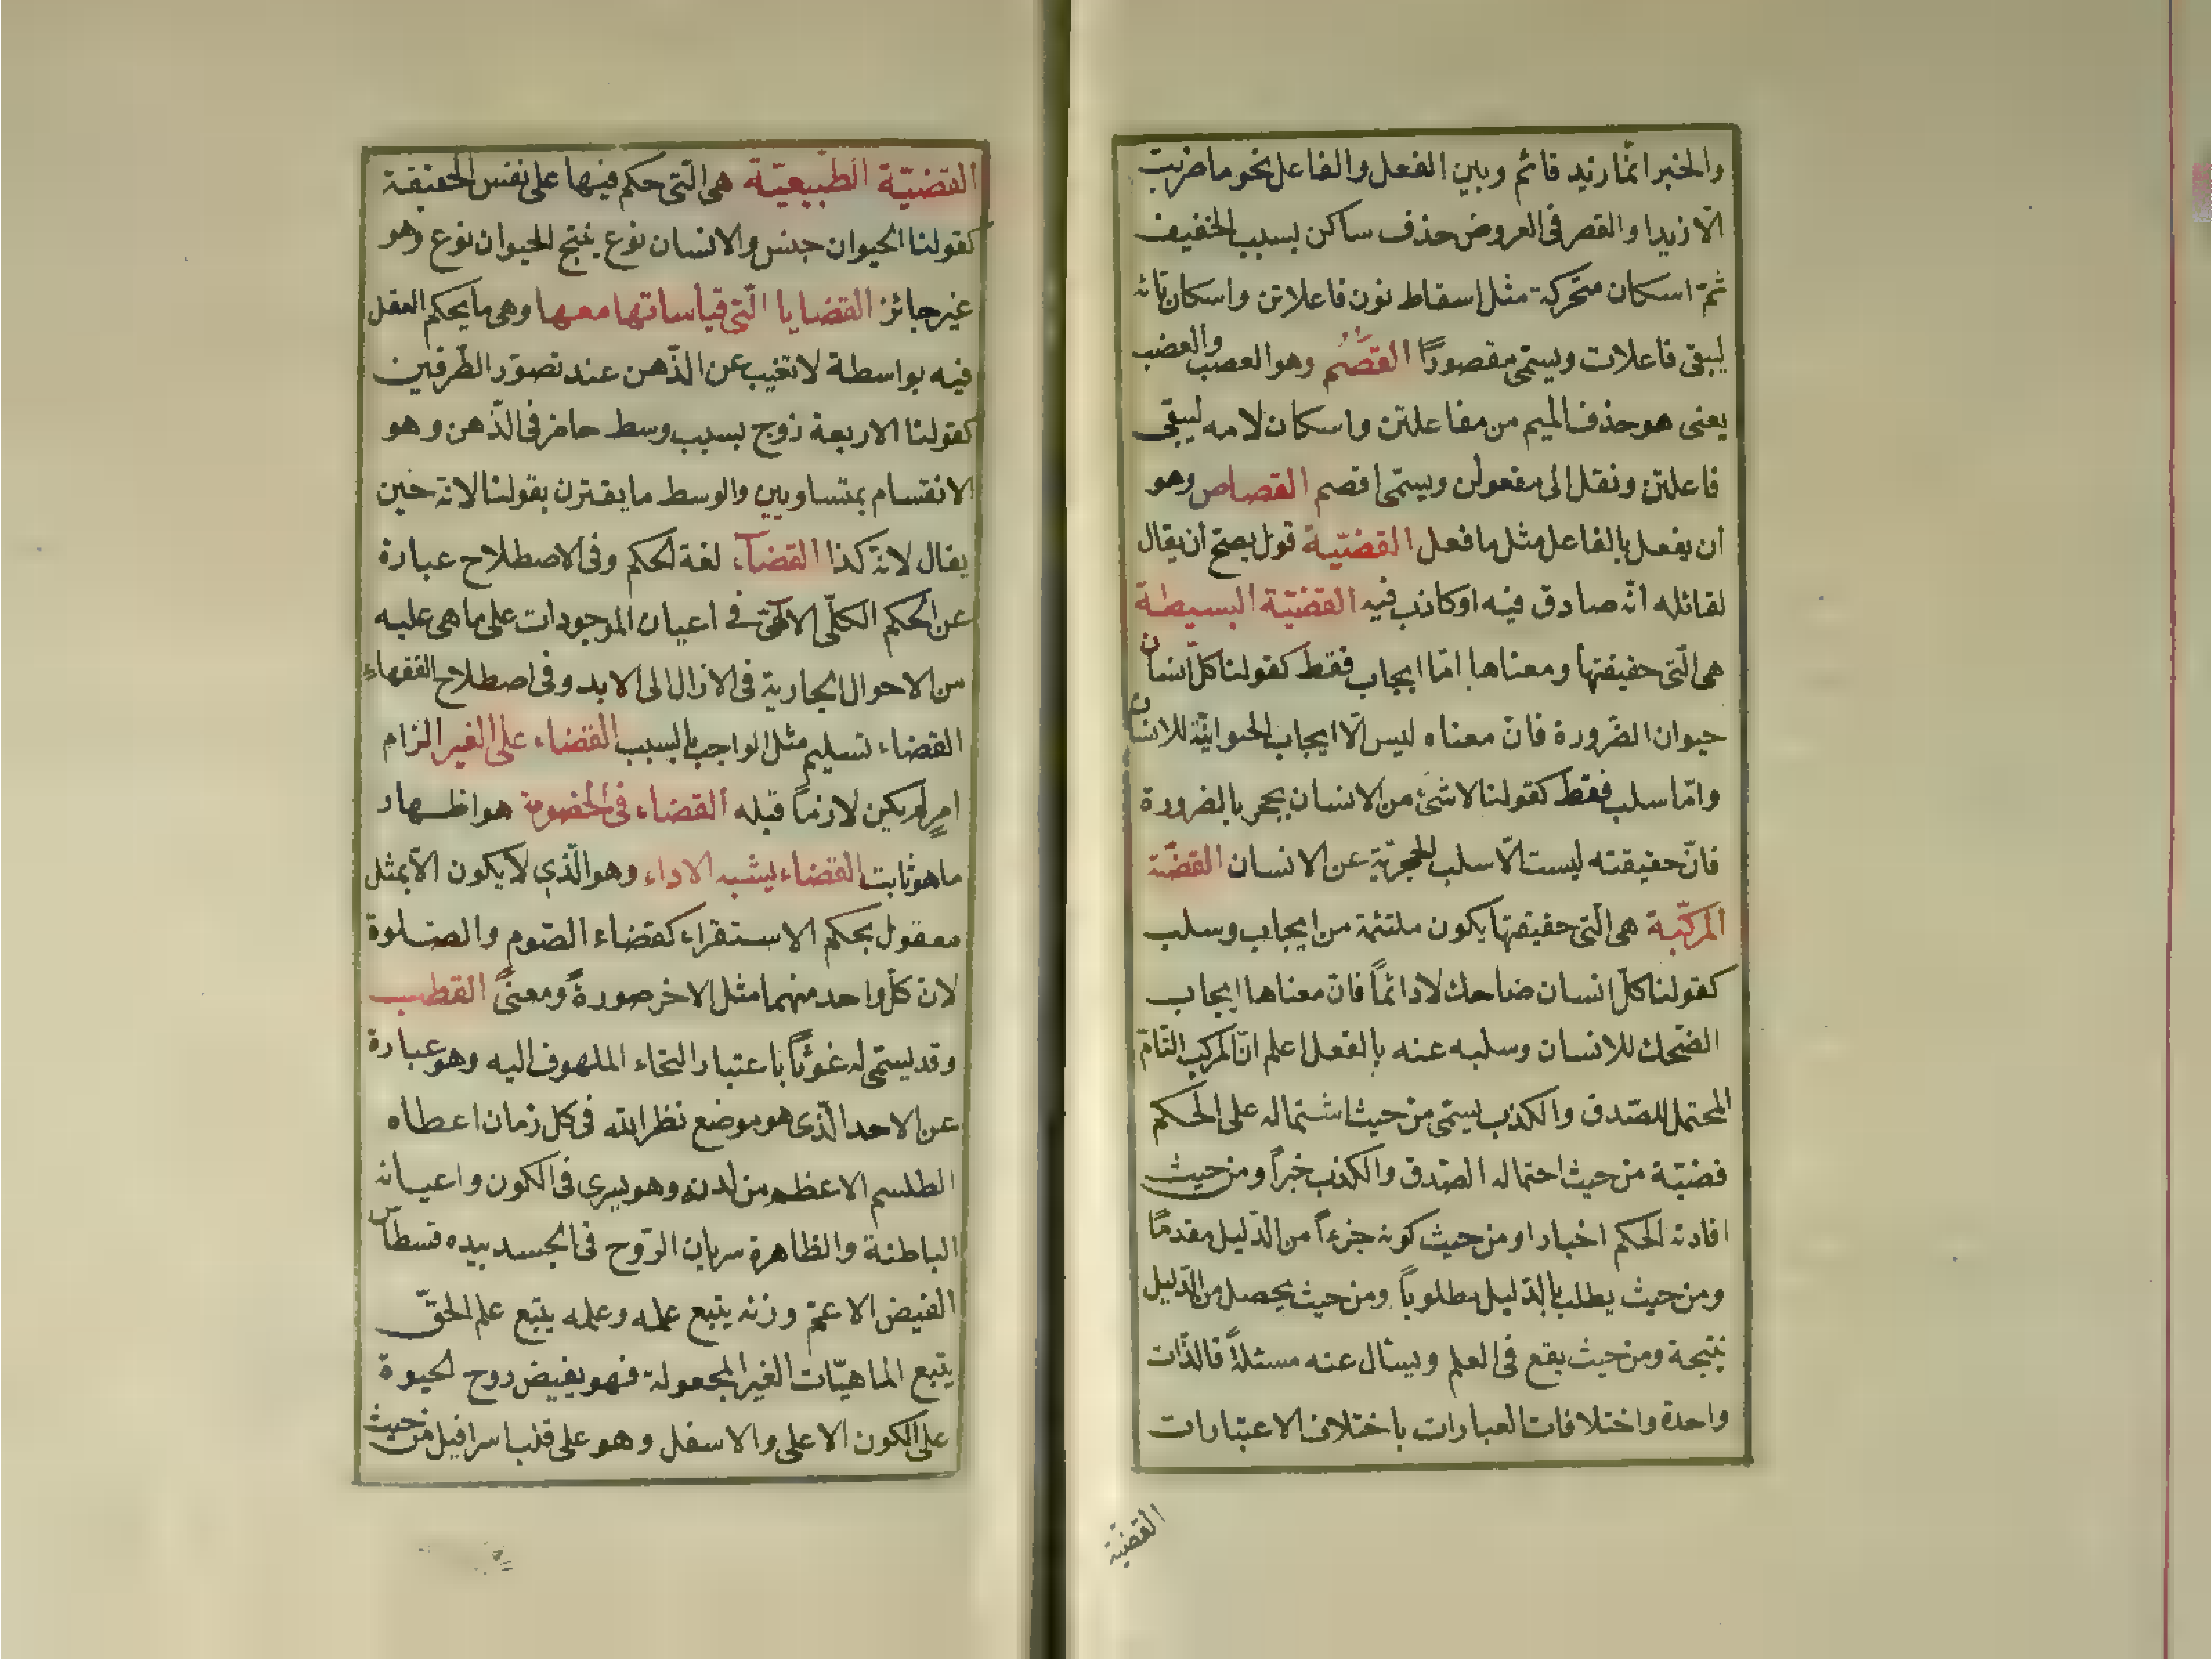 والخبر انّما زيد قائم وبين الفعل والفاعل نحو ما ضربت
الّا زيدا والقصر فى العروض حذف ساكن بسبب الخفيف
ثمّ اسكان متحركه مثل اسقاط نون فاعلاتن واسكان تائه
ليبقى فاعلات ويسمّى مقصورًا القصم وهو العصب والعضب
يعنى هو حذف الميم من مفاعلتن واسكان لامه ليبقى
فاعلتن ونقل الى مفعولن ويسمّى اقصم القصاص وهو
ان يفعل بالفاعل مثل ما فعل القضيّة قول يصحّ ان يقال
لقائله انّه صادق فيه او كاذب فيه القضيّة البسيطة
هى الّتى حقيقتها ومعناها امّا ايجاب فقط كقولنا كلّ انسان
حيوان الضّرورة فانّ معناه ليس الّا ايجاب الحيوانيّة للانسان
وامّا سلب فقط كقولنا لا شئ من الانسان بحجر بالضرورة
فانّ حقيقته ليست الّا سلب الحجريّة عن الانسان القضيّة
المركّبة هى الّتى حقيقتها يكون ملتئمة من ايجاب وسلب
كقولنا كلّ انسان ضاحك لا دائماً فانّ معناها ايجاب
الضّحك للانسان وسلبه عنه بالفعل اعلم انّ المركب التّامّ
المحتمل للصّدق والكذب يسمّى من حيث اشتماله على الحكم
قضيّة من حيث احتماله الصّدق والكذب خبراً ومن حيث
افادته الحكم اخبارا ومن حيث كونه جزءاً من الدّليل مقدمًا
ومن حيث يطلب بالدّليل مطلوباً ومن حيث يحصل من الدّليل
نتيجة ومن حيث يقع فى العلم ويسأل عنه مسئلةً فالذّات
واحدة واختلافات العبارات باختلاف الاعتبارات
القضيّة
القضيّة الطّبيعيّة هى الّتى حكم فيها على نفس الحقيقة
كقولنا الحيوان جنس والانسان نوع ينتج الحيوان نوع وهو
غير جائز القضايا الّتى قياساتها معها وهى ما يحكم العقل
فيه بواسطة لا تغيب عن الذّهن عند تصوّر الطّرفين
كقولنا الاربعة زوج بسبب وسط حاضر فى الذّهن وهو
الانقسام بمتساويين والوسط ما يقترن بقولنا لانّه حين
يقال لانّه كذا القضآء لغة الحكم وفى الاصطلاح عبارة
عن الحكم الكلّى الالٰهىّ فى اعيان الموجودات على ما هى عليه
من الاحوال الجارية فى الازال الى الابد وفى اصطلاح الفقهاء
القضاء تسليم مثل الواجب بالسبب القضاء على الغير الزام
امرٍ لم يكن لازماً قبله القضاء فى الخصومة هو اظهار
ما هو ثابت القضاء يشبه الاداء وهو الّذى لا يكون الّا بمثل
معقول بحكم الاستقراء كقضاء الصّوم والصّلوة
لانّ كلّ واحد منهما مثل الاخر صورةً ومعنىً القطب
وقد يسمّى له غوثاً باعتبار التجاء الملهوف اليه وهو عبارة
عن الاحد الّذى هو موضع نظر الله فى كل زمان اعطاه
الطلسم الاعظم من لدنه وهو يسرى فى الكون واعيانه
الباطنة والظاهرة سريان الرّوح فى الجسد بيده قسطاس
الفيض الاعمّ وزنه يتبع علمه وعلمه يتبع علم الحقّ
يتبع الماهيّات الغير المجعولة فهو يفيض روح الحيوة
على الكون الاعلى والاسفل وهو على قلب اسرافيل من حيث